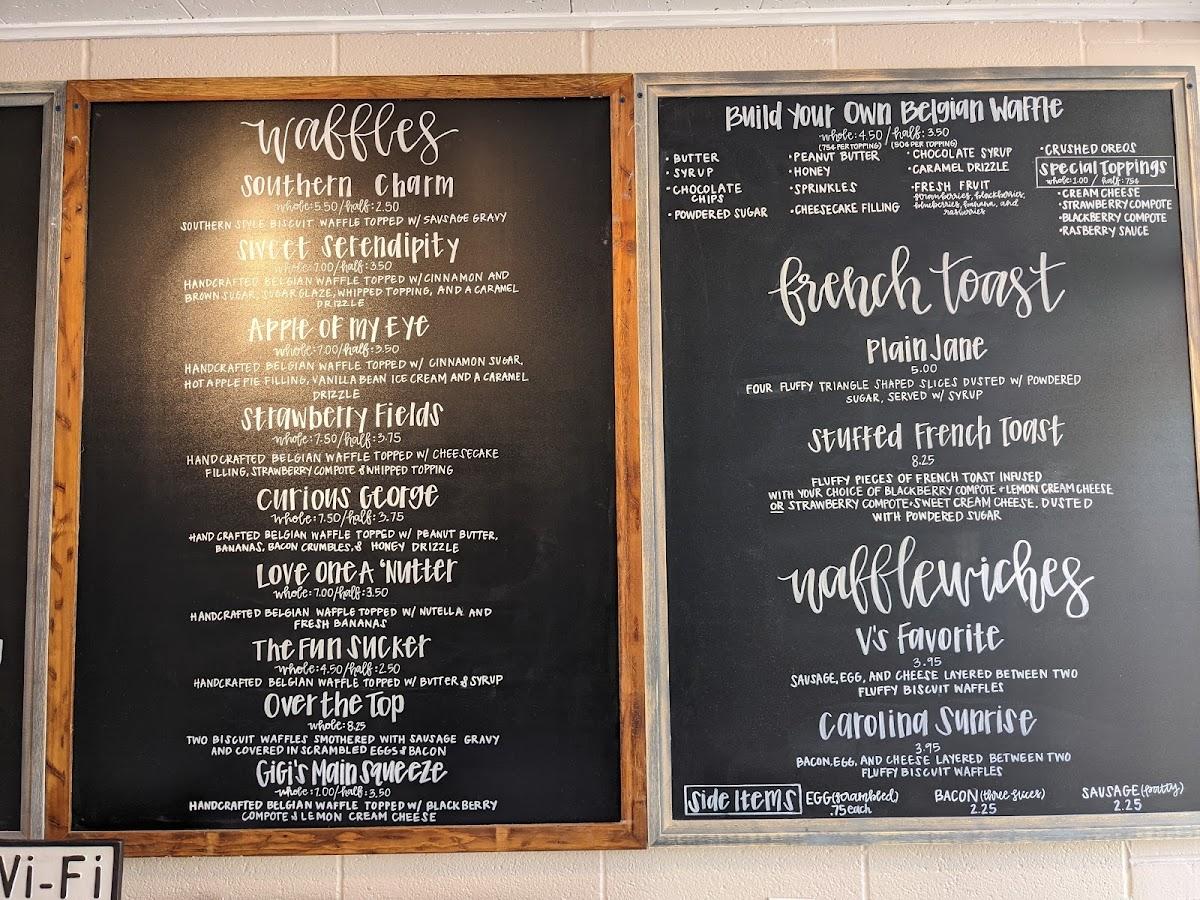 waffles
Southern Charm
whole: 5.50/half: 2.50
SOUTHERN STYLE BISCUIT WAFFLE TOPPED W/ SAUSAGE GRAVY
Sweet Serendipity
whole: 7.00/half: 3.50
HANDCRAFTED BELGIAN WAFFLE TOPPED W/ CINNAMON AND
BROWN SUGAR, SUGAR GLAZE, WHIPPED TOPPING, AND A CARAMEL
DRIZZLE
Apple Of My Eye
whole: 7.00/half: 3.50
HANDCRAFTED BELGIAN WAFFLE TOPPED W/ CINNAMON SUGAR,
HOT APPLE PIE FILLING, VANILLA BEAN ICE CREAM AND A CARAMEL
DRIZZLE
Strawberry Fields
whole: 7.50/half: 3.75
HANDCRAFTED BELGIAN WAFFLE TOPPED W/ CHEESECAKE
FILLING, STRAWBERRY COMPOTE & WHIPPED TOPPING
Curious George
whole: 7.50/half: 3.75
HAND CRAFTED BELGIAN WAFFLE TOPPED W/ PEANUT BUTTER,
BANANAS, BACON CRUMBLES, & HONEY DRIZZLE
Love One A 'Nutter
whole: 7.00/half: 3.50
HANDCRAFTED BELGIAN WAFFLE TOPPED W/ NUTELLA AND
FRESH BANANAS
The Fun Sucker
whole: 4.50/half: 2.50
HANDCRAFTED BELGIAN WAFFLE TOPPED W/ BUTTER & SYRUP
Over the Top
whole: 8.25
TWO BISCUIT WAFFLES SMOTHERED WITH SAUSAGE GRAVY
AND COVERED IN SCRAMBLED EGGS & BACON
Gigi's Main Squeeze
whole: 7.00/half: 3.50
HANDCRAFTED BELGIAN WAFFLE TOPPED W/ BLACKBERRY
COMPOTE & LEMON CREAM CHEESE
Wi-Fi
Build Your Own Belgian Waffle
whole: 4.50 / half: 3.50
(75¢ PER TOPPING) (50¢ PER TOPPING)
• BUTTER
• SYRUP
• CHOCOLATE
CHIPS
• POWDERED SUGAR
• PEANUT BUTTER
• HONEY
• SPRINKLES
• CHEESECAKE FILLING
• CHOCOLATE SYRUP
• CARAMEL DRIZZLE
• FRESH FRUIT
strawberries, blackberries,
blueberries, banana, and
rasberries
• CRUSHED OREOS
Special Toppings
whole: 1.00 / half: 75¢
• CREAM CHEESE
• STRAWBERRY COMPOTE
• BLACKBERRY COMPOTE
• RASBERRY SAUCE
french toast
Plain Jane
5.00
FOUR FLUFFY TRIANGLE SHAPED SLICES DUSTED W/ POWDERED
SUGAR, SERVED W/ SYRUP
Stuffed French Toast
8.25
FLUFFY PIECES OF FRENCH TOAST INFUSED
WITH YOUR CHOICE OF BLACKBERRY COMPOTE + LEMON CREAM CHEESE
OR STRAWBERRY COMPOTE + SWEET CREAM CHEESE. DUSTED
WITH POWDERED SUGAR
wafflewiches
V's Favorite
3.95
SAUSAGE, EGG, AND CHEESE LAYERED BETWEEN TWO
FLUFFY BISCUIT WAFFLES
Carolina Sunrise
3.95
BACON, EGG, AND CHEESE LAYERED BETWEEN TWO
FLUFFY BISCUIT WAFFLES
Side Items
EGG (scrambled)
.75 each
BACON (three slices)
2.25
SAUSAGE (patty)
2.25